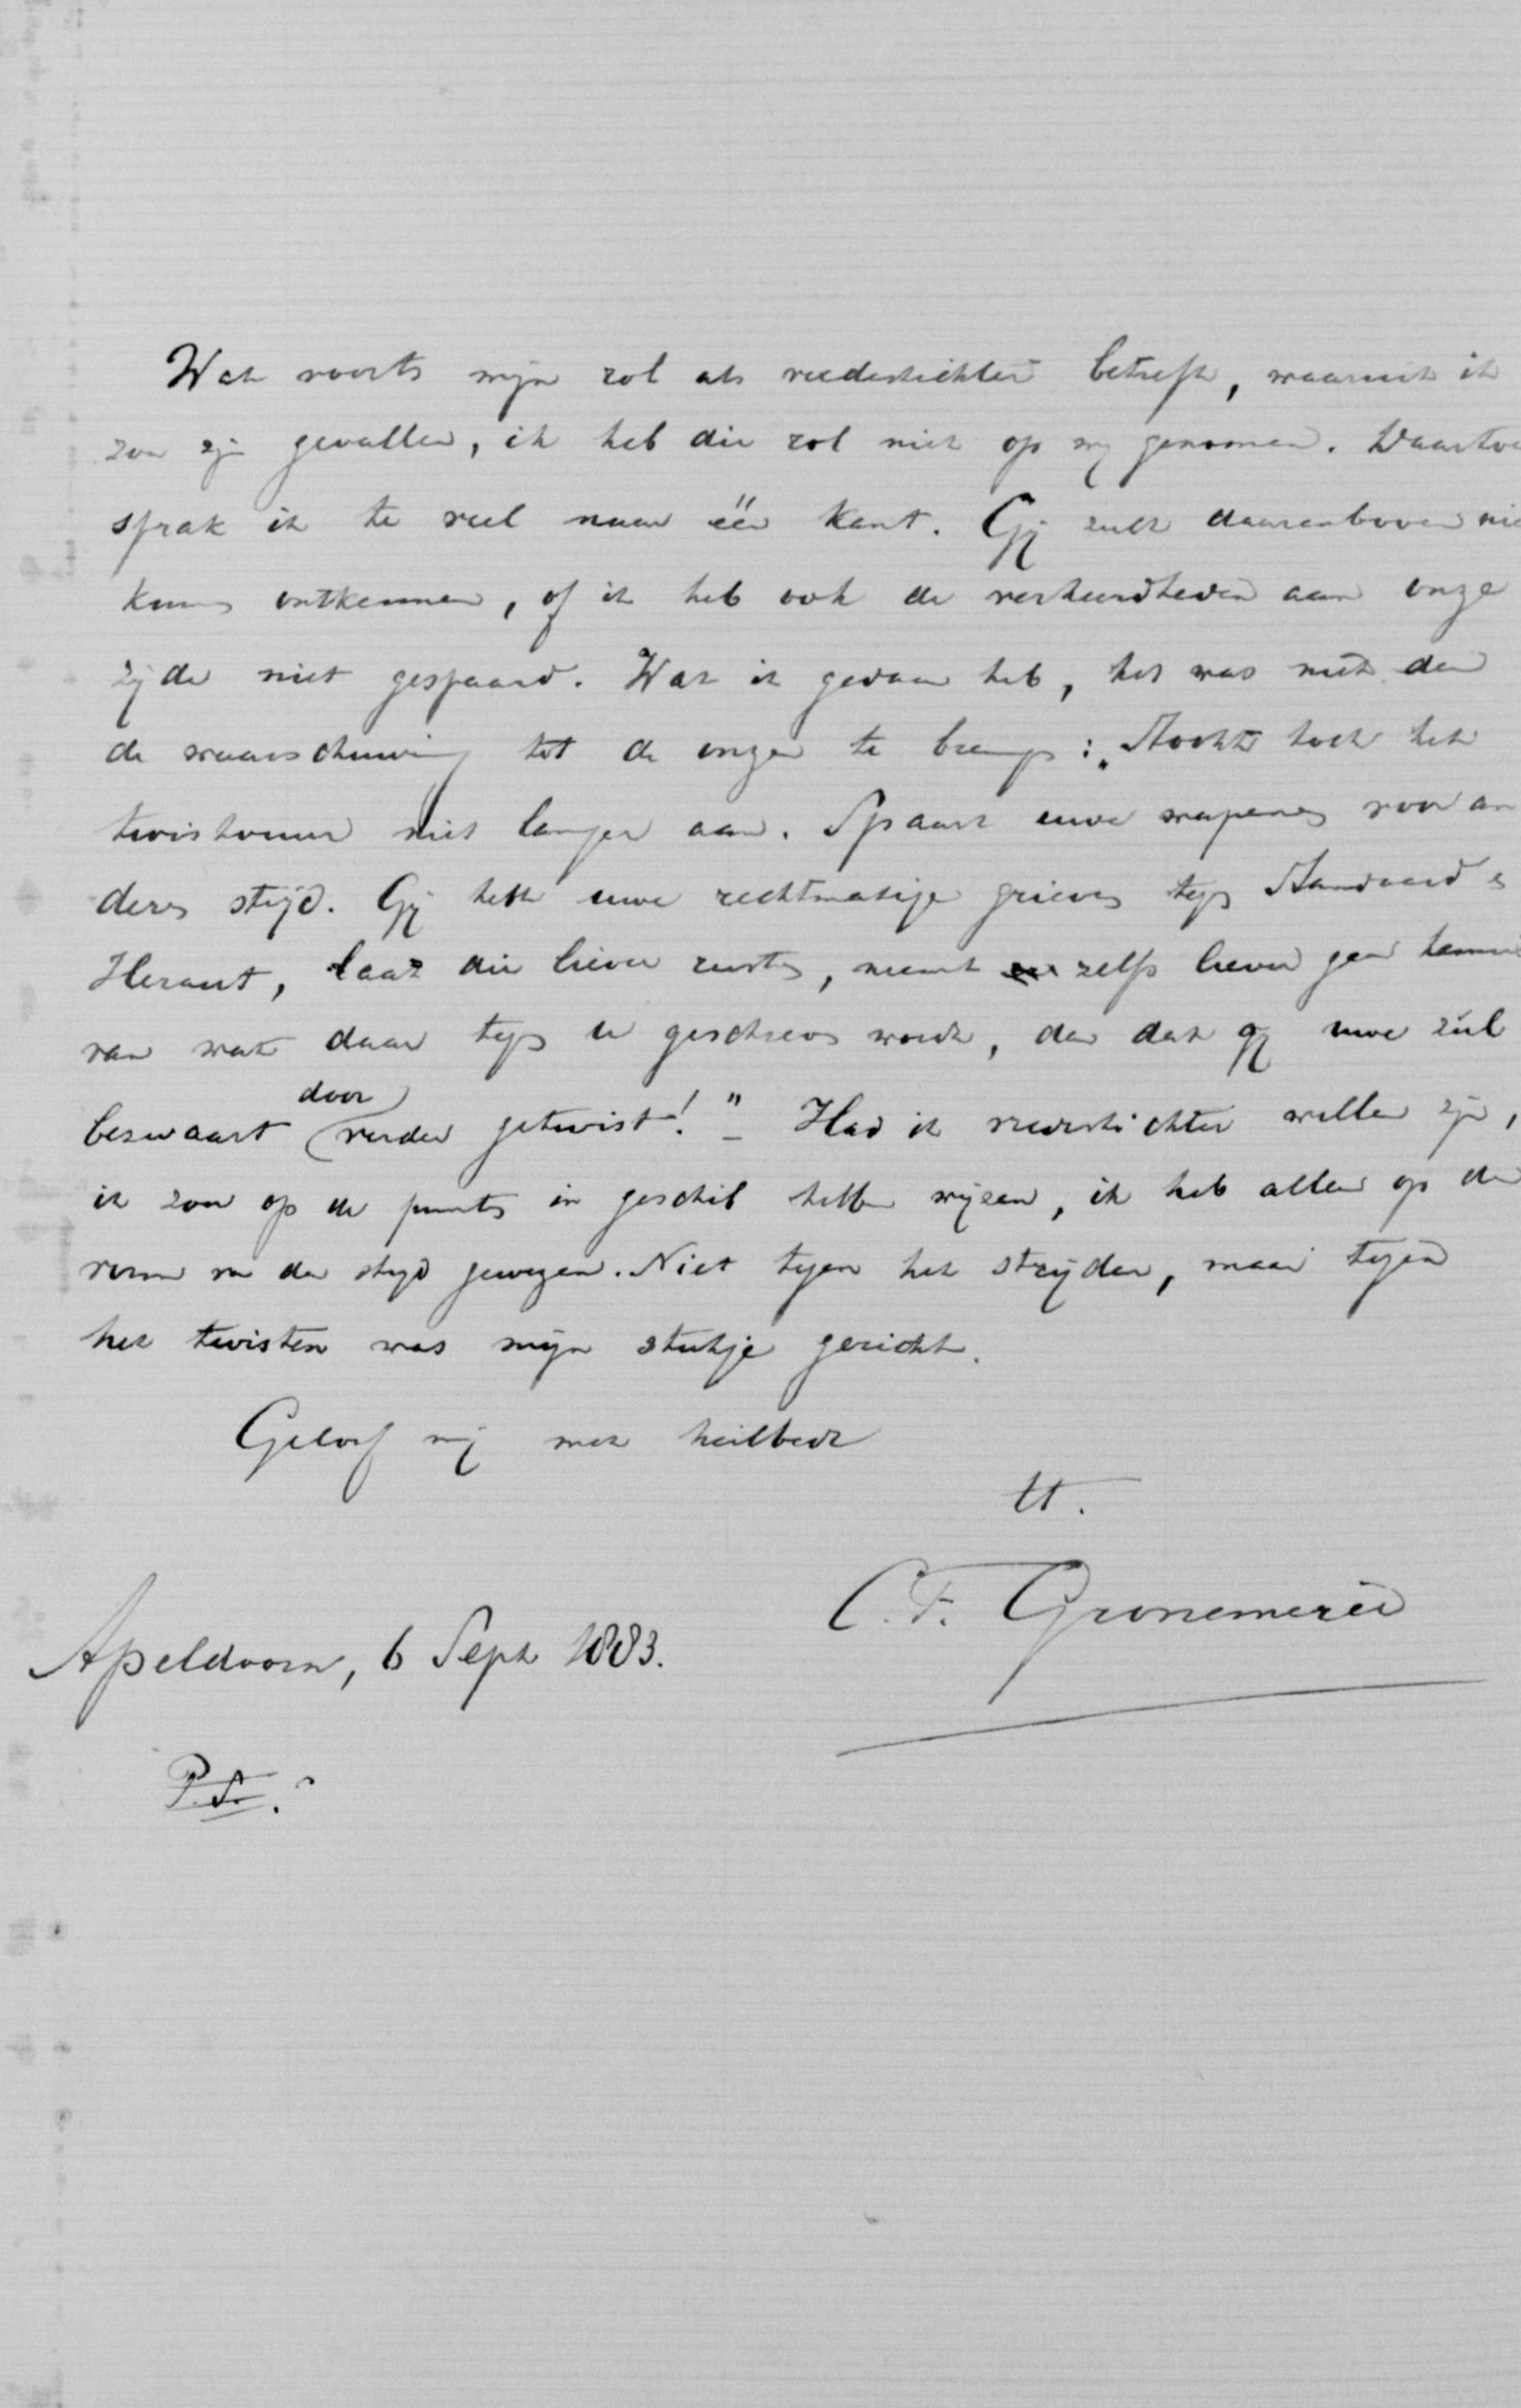 Wat voorts mijn rol als vredestichter betreft, waaruit ik
zou zijn gevallen, ik heb die rol niet op mij genomen. Daartoe
sprak ik te veel naar één kant. Gij zult daarenboven nie
kunnen ontkennen, of ik heb ook de verkeerdheden aan onze
zijde niet gespaard. Wat ik gedaan heb, het was niet dan
de waarschuwing tot de onzen te brengen: „Stookt toch het
twistvuur niet langer aan. Spaart uwe wapenen voor an
deren strijd. Gij hebt uwe rechtmatige grieven tegen Standaard en
Heraut, laat die liever rusten, neemt zelfs liever geen kennis
van wat daar tegen u geschreven wordt, dan dat gij uwe ziel
bezwaart door verder getwist!" – Had ik vredestichter willen zijn,
ik zou op de punten in geschil hebben wijzen, ik heb alleen op den
vorm van den strijd gewezen. Niet tegen het strijden, maar tegen
het twisten was mijn stukje gericht.
Geloof mij met heilbede
tt.
C. F. Gronemeijer
Apeldoorn, 6 Sept 1883.
P.S.